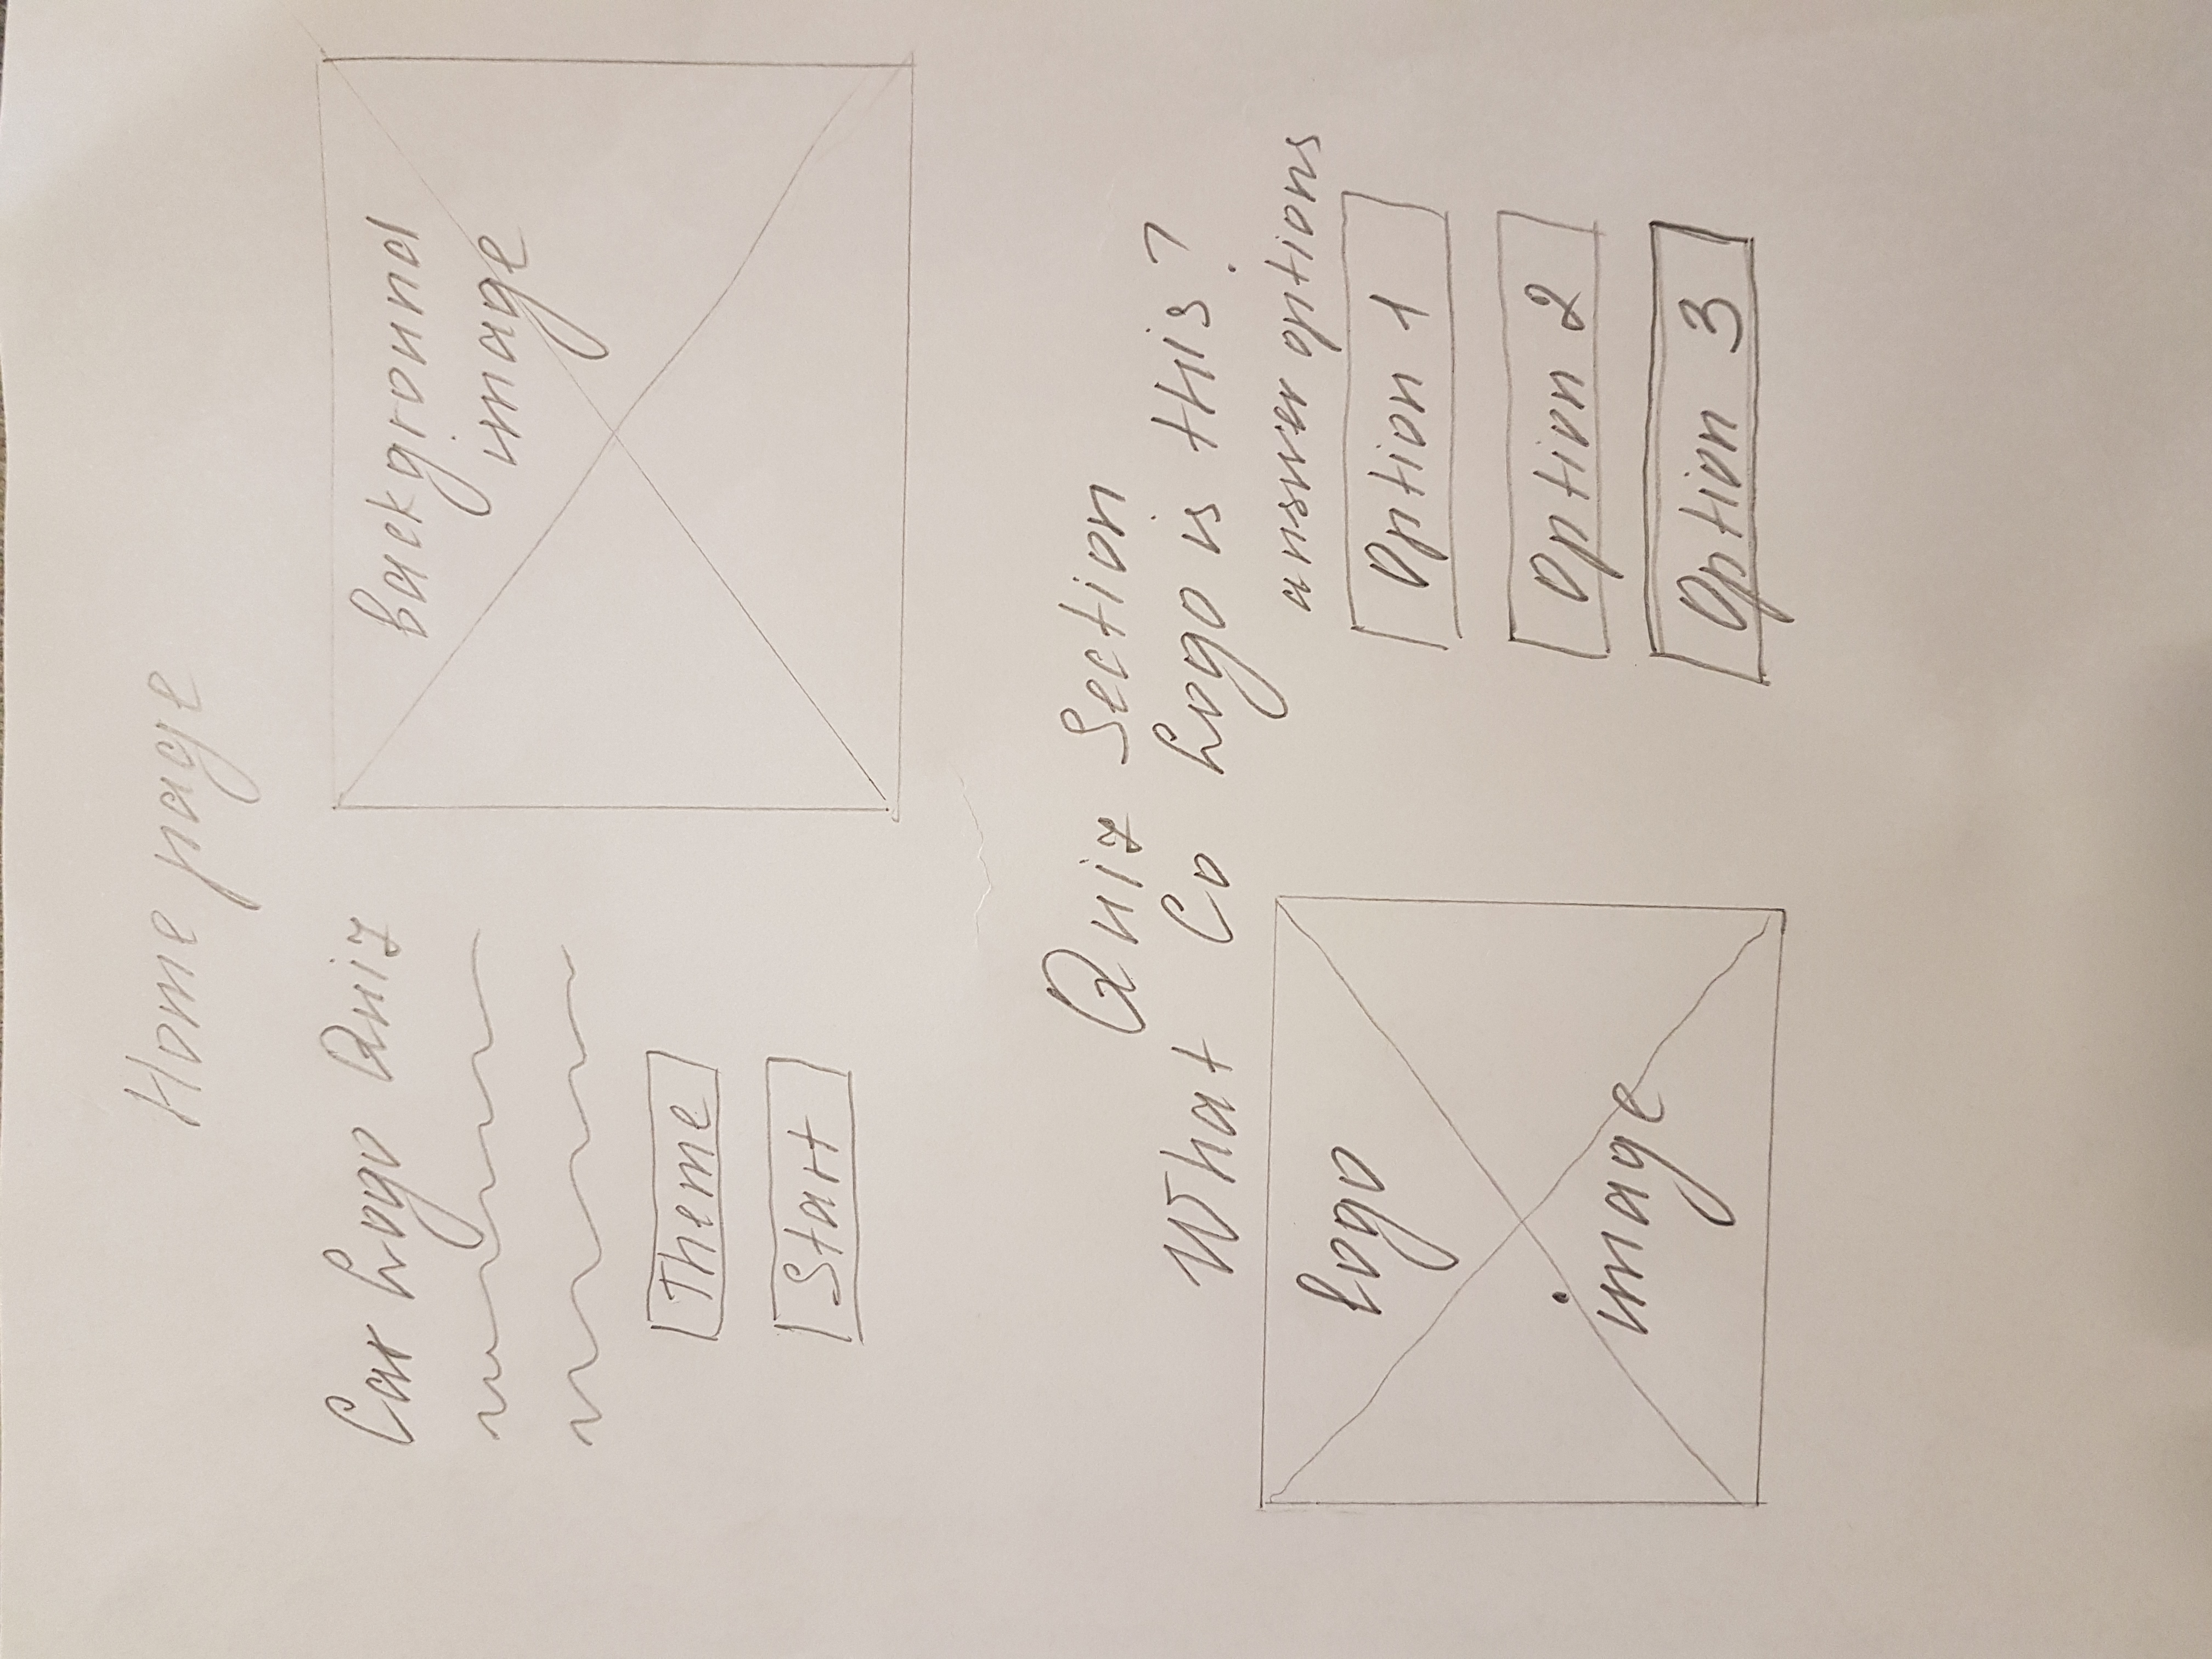 Home page
Car Logo Quiz
background
image
Theme
Start
Quiz Section
What Co Logo is this?
logo
image
answer options
Option 1
Option 2
Option 3